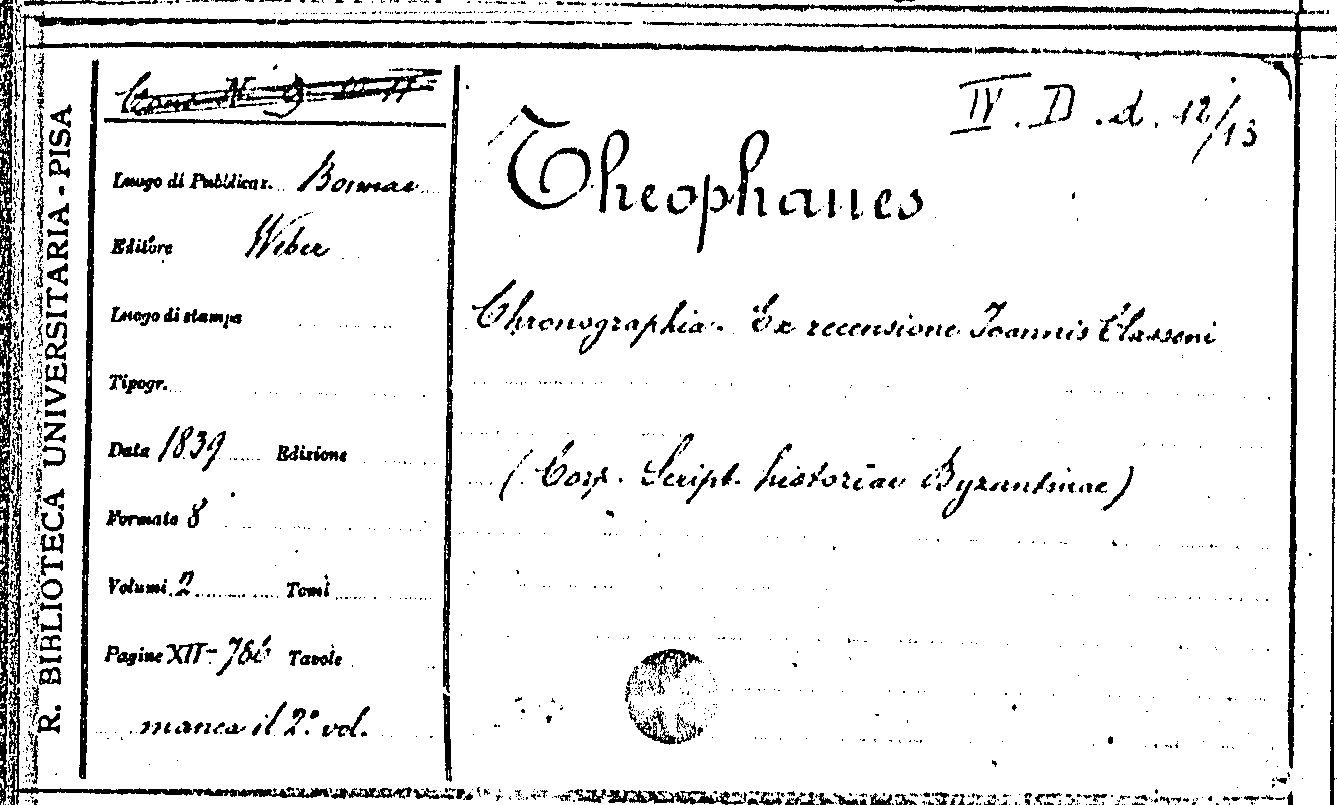 R. BIBLIOTECA UNIVERSITARIA - PISA
IV. D. d. 12/13
Luogo di Pubblicaz. Bonnae
Editore Weber
Luogo di stampa
Tipogr.
Data 1839 Edizione
Formato 8°
Volumi 2 Tomi
Pagine XII- Tavole
manca il 2° vol.
Theophanes
Chronographia. Ex recensione Ioannis Classeni
(Corp. Script. historiae Byzantinae)